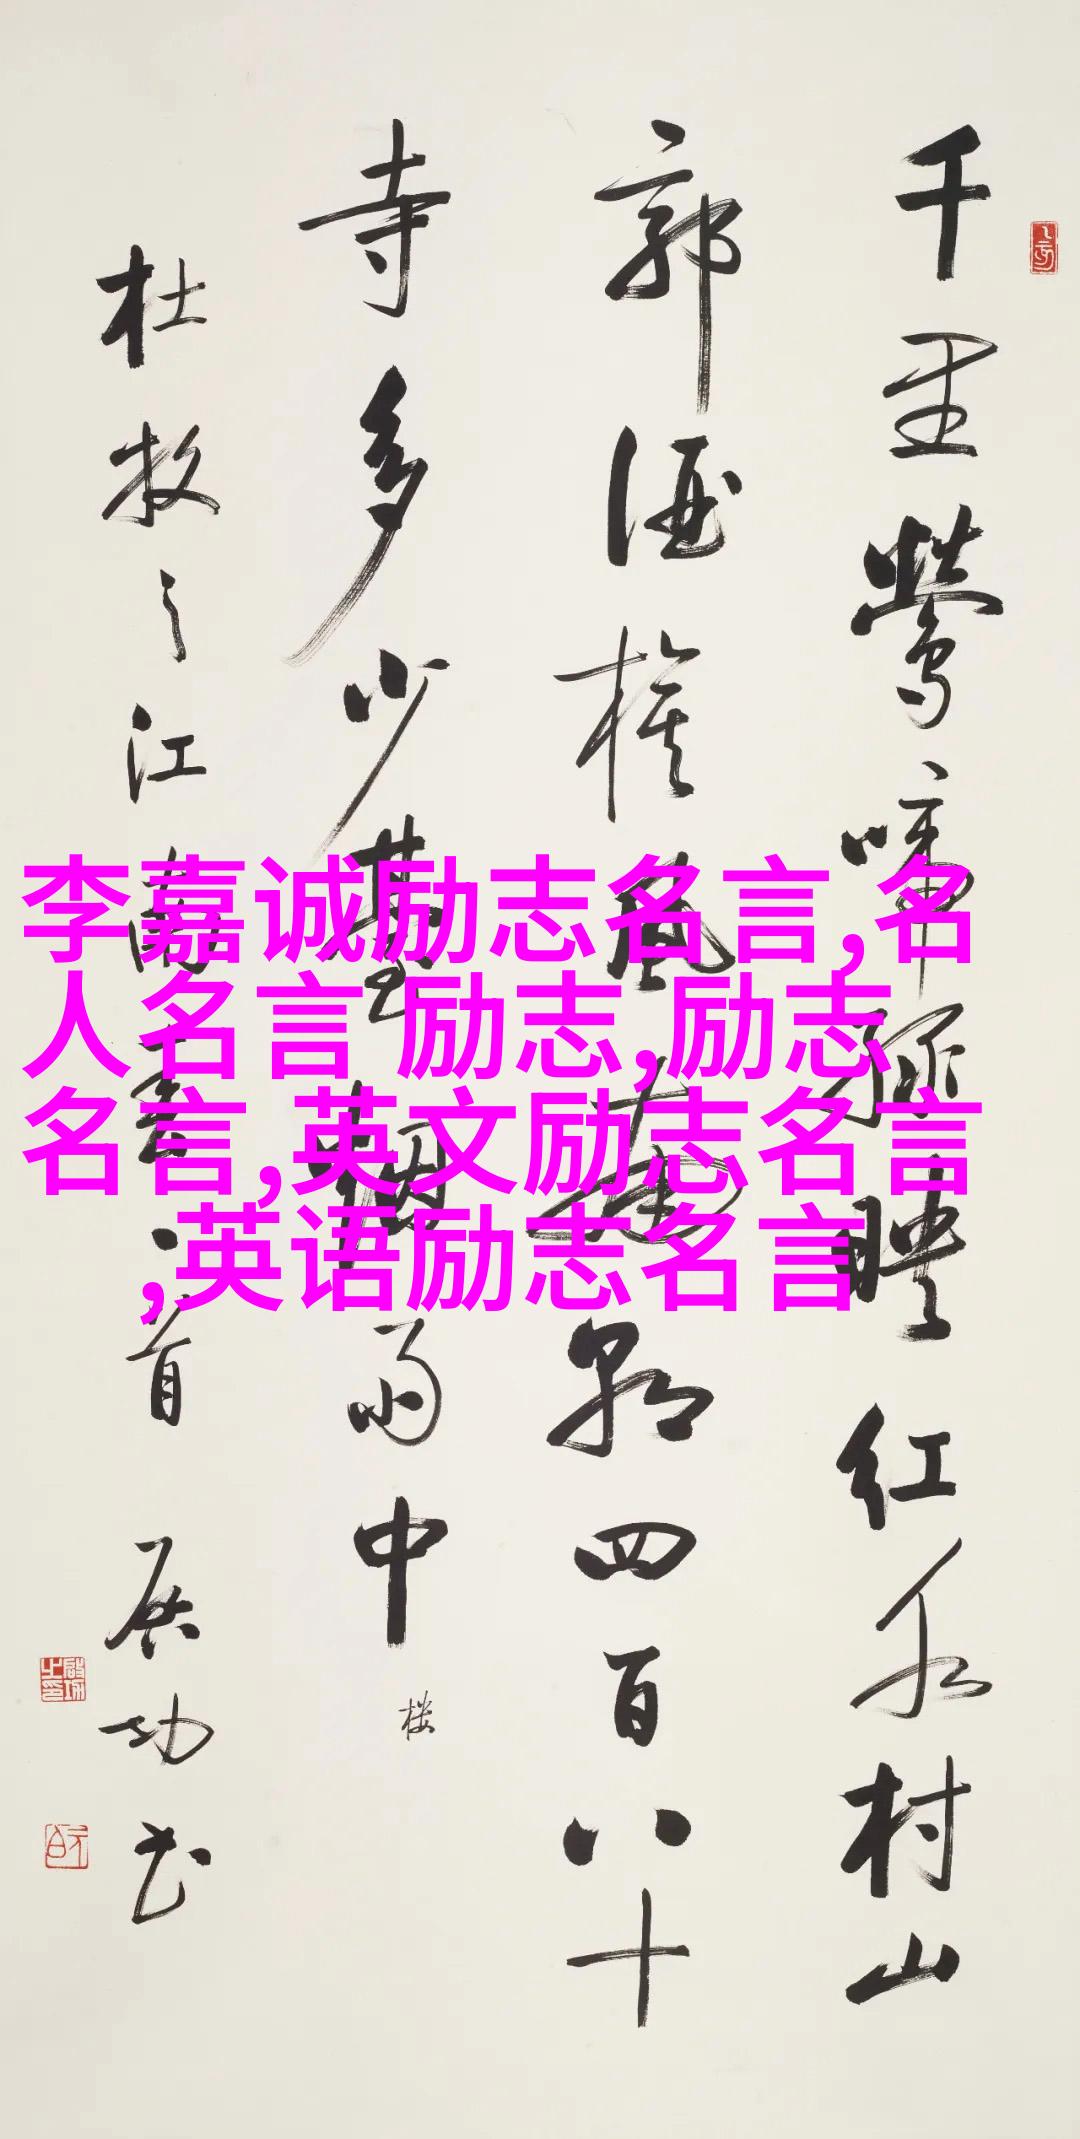 千里鶯啼綠映红水村山
郭酒旗風南朝四百八十
寺多少臺烟雨中
楼
杜牧之江南春一首 启功书
李嘉诚励志名言,名
人名言 励志,励志
名言,英文励志名言
,英语励志名言